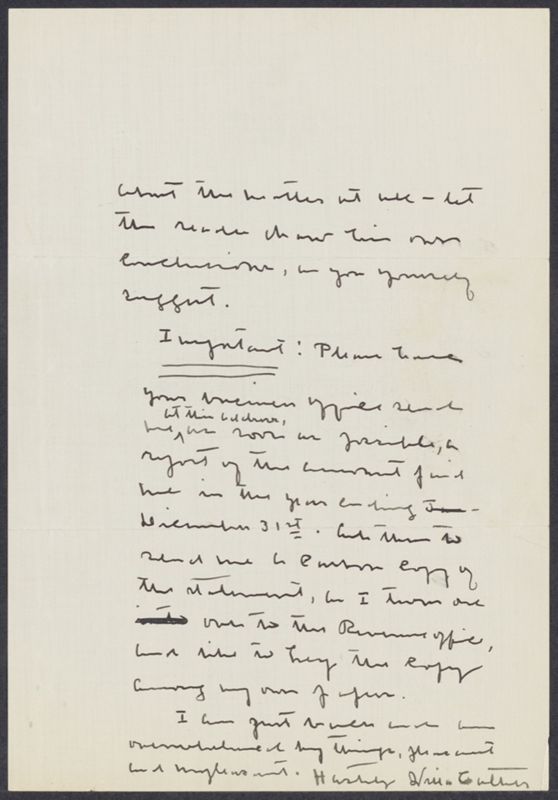 about the matter at all – let
the reader draw his own
conclusions, as you yourself
suggest.
Important: Please have
your business office send
at this address,
me, as soon as possible, a
report of the amount paid
me in the year ending
December 31st. Ask them to
send me a carbon copy of
the statement, as I turn one
over to the Revenue office,
and like to keep the copy
among my own papers.
I am just back and am
overwhelmed by things, pleasant
and unpleasant. Hastily Willa Cather